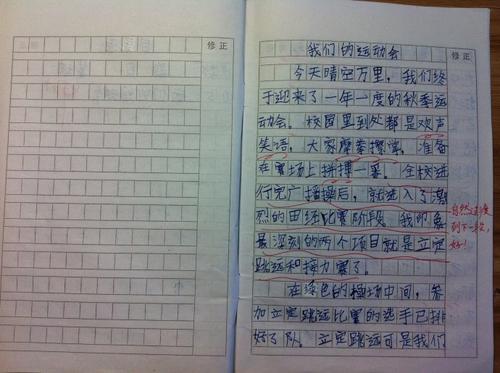 修正
修正
我们的运动会
今天晴空万里，我们终
于迎来了一年一度的秋季运
动会。校园里到处都是欢声
笑语，大家摩拳擦掌，准备
在赛场上拼搏一番。全校进
行完广播操后，就进入了激
烈的田径比赛阶段。我印象
最深刻的两个项目就是立定
跳远和接力赛了。
自然过度
到下一段，
好！
在绿色的操场中间，参
加立定跳远比赛的选手已排
好了队。立定跳远可是我们